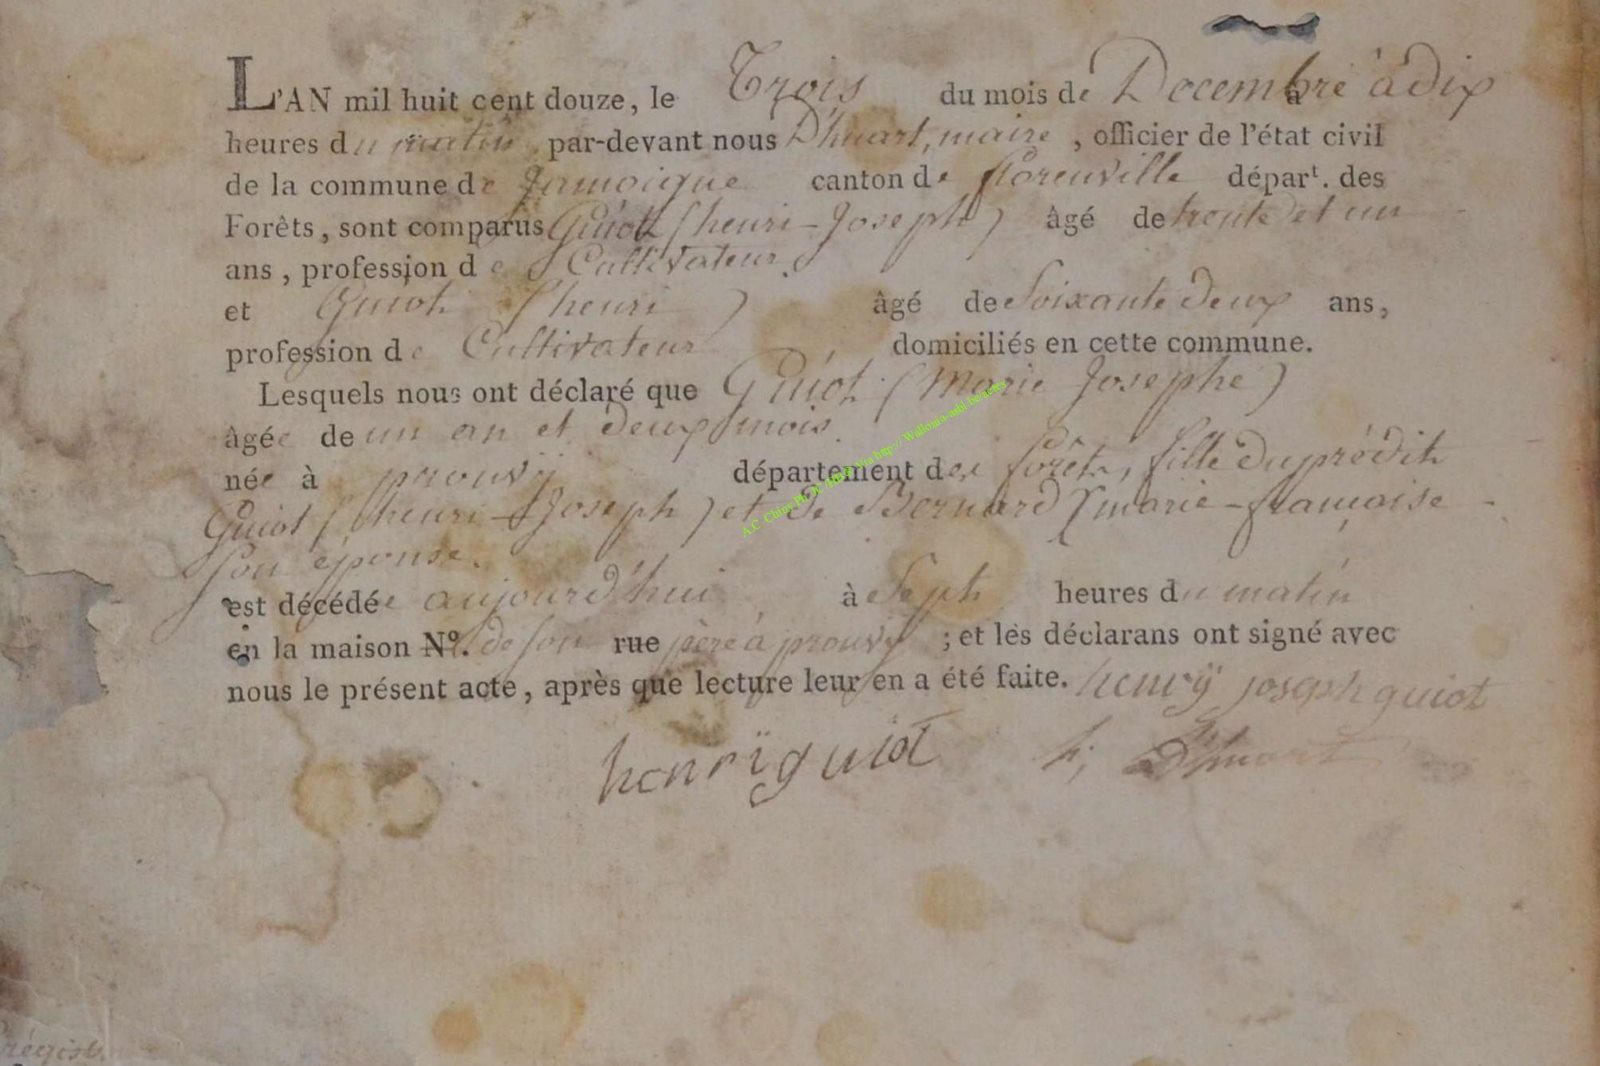 L'AN mil huit cent douze, le Trois du mois de Decembre à dix
heures du matin, par-devant nous D'huart, maire, officier de l'état civil
de la commune de Jamoigne canton de florenvilleépart. des
Forêts, sont comparus Guiot (henri-Joseph) âgé de trente et un
ans, profession de Cultivateur.
et Guiot (henri) âgé de Soixante deux ans,
profession de Cultivateur domiciliés en cette commune.
Lesquels nous ont déclaré que Guiot (Marie Josephe)
âgée de un an et deux mois.
née à prouvÿ département des forêts, fille du prédit
Guiot (henri-Joseph) et de Bernard (marie-françoise
son épouse.
est décédée aujourd'hui à Sept heures du matin
en la maison N°. de son rue père à prouvÿ; et les déclarans ont signé avec
nous le présent acte, après que lecture leur en a été faite. henrÿ joseph guiot
henrÿ guiot h; D'huart
A.C. Chiny
régist.